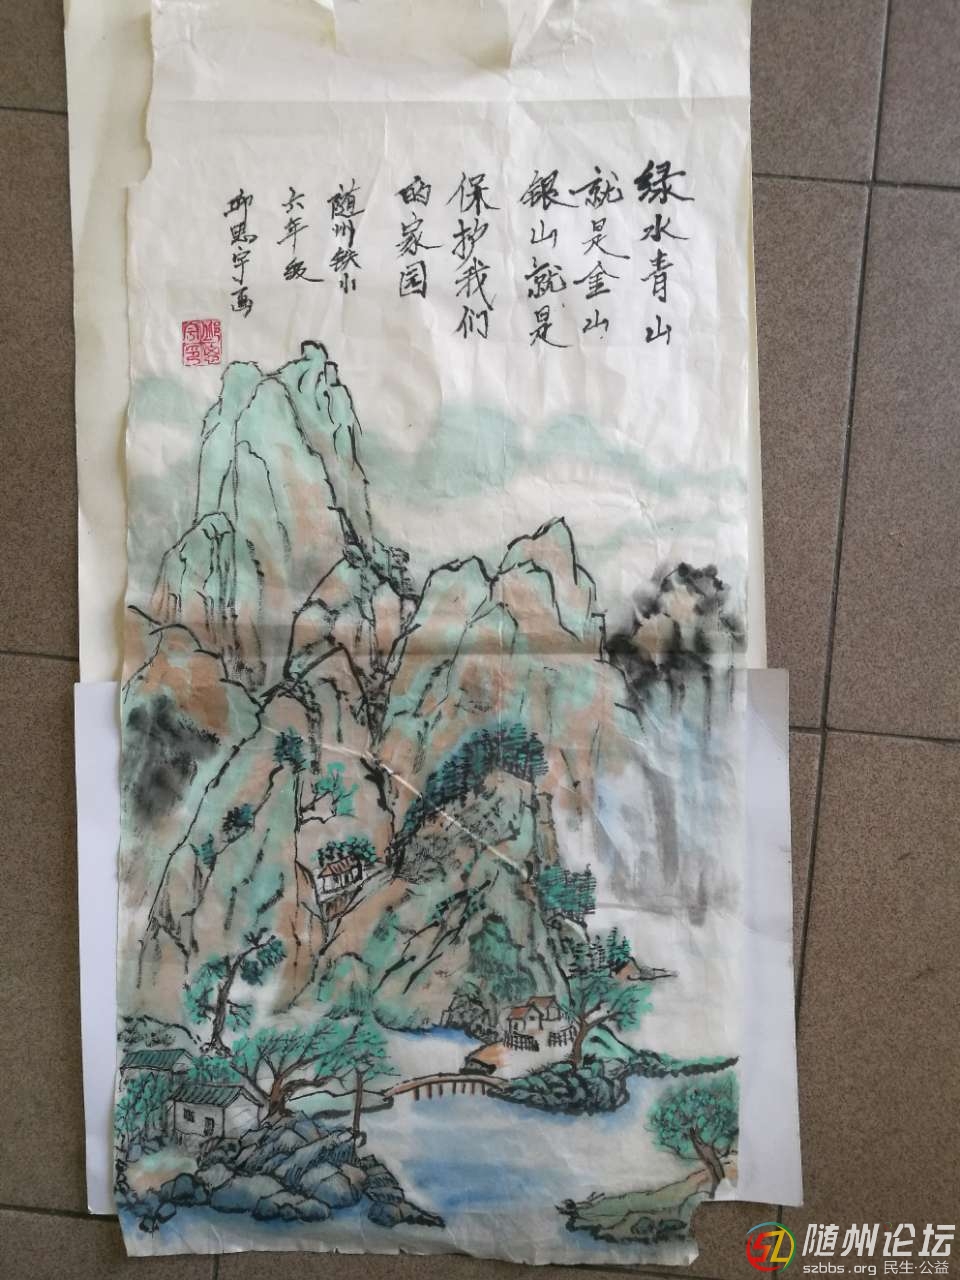 绿水青山
就是金山
银山就是
保护我们
的家园
随州铁小
六年级
邱思宇画
邱思
宇印
随州论坛
szbbs.org 民生·公益